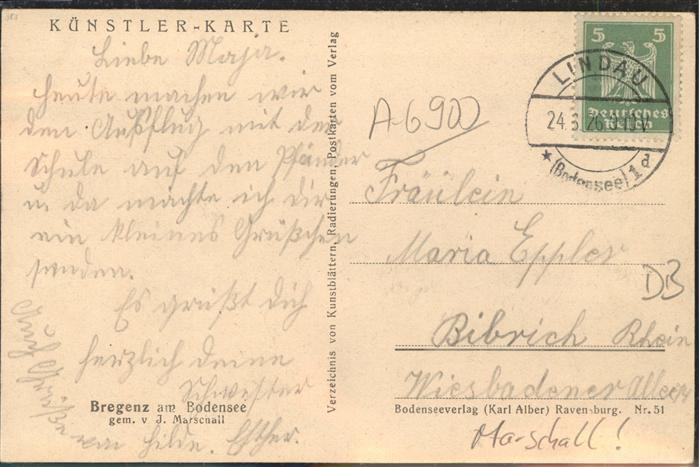 KÜNSTLER-KARTE
Liebe Maja.
Heute machen wir
den Ausflug mit der
Schule auf den Pfänder
u. da möchte ich dir
ein kleines Grüßchen
senden.
Es grüßt dich
herzlich deine
Schwester
Esther.
Auch Grüße
von Hilde.
Bregenz am Bodensee
gem. v J. Marschall
Verzeichnis von Kunstblättern, Radierungen, Postkarten vom Verlag
5 5
Deutsches
Reich
LINDAU
24.
26.
* (Bodensee) 1 d
A-6900
Fräulein
Maria Eppler
DB
Bibrich Rhein
Wiesbadener Allee
Bodenseeverlag (Karl Alber) Ravensburg. Nr. 51
Marschall!